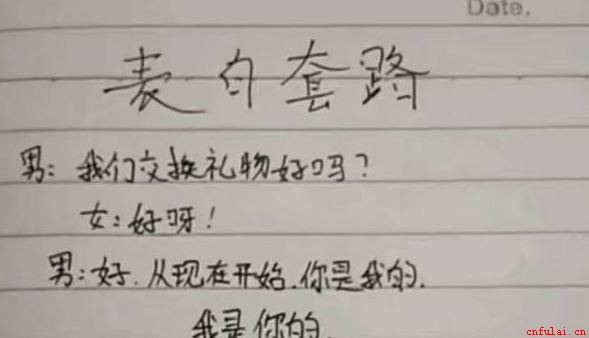 Date.
表白套路
男：我们交换礼物好吗？
女：好呀！
男：好.从现在开始.你是我的.
我是你的.
cnfulai.cn